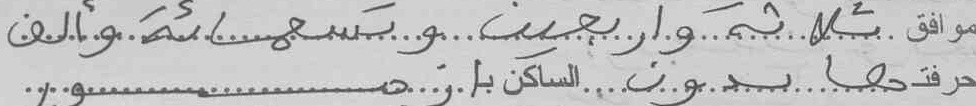 موافق ثلاثة واربعين وتسعمائة وألف
حرفتها بدون الساكن ب